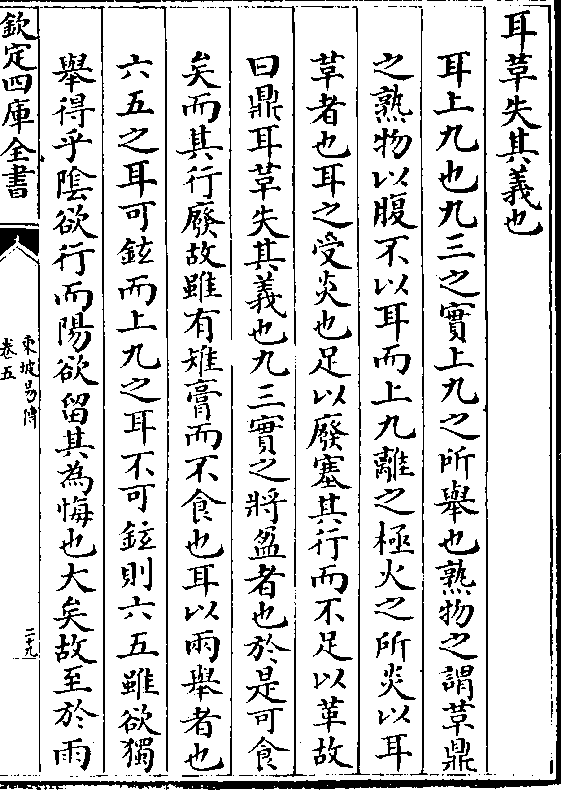 耳革失其義也
耳上九也九三之實上九之所舉也熟物之謂革鼎
之熟物以腹不以耳而上九離之極火之所炎以耳
革者也耳之受炎也足以廢塞其行而不足以革故
曰鼎耳革失其義也九三實之將盈者也於是可食
矣而其行廢故雖有雉膏而不食也耳以兩舉者也
六五之耳可鉉而上九之耳不可鉉則六五雖欲獨
舉得乎陰欲行而陽欲留其為悔也大矣故至於雨
欽定四庫全書
東坡易傳
卷五
二十九